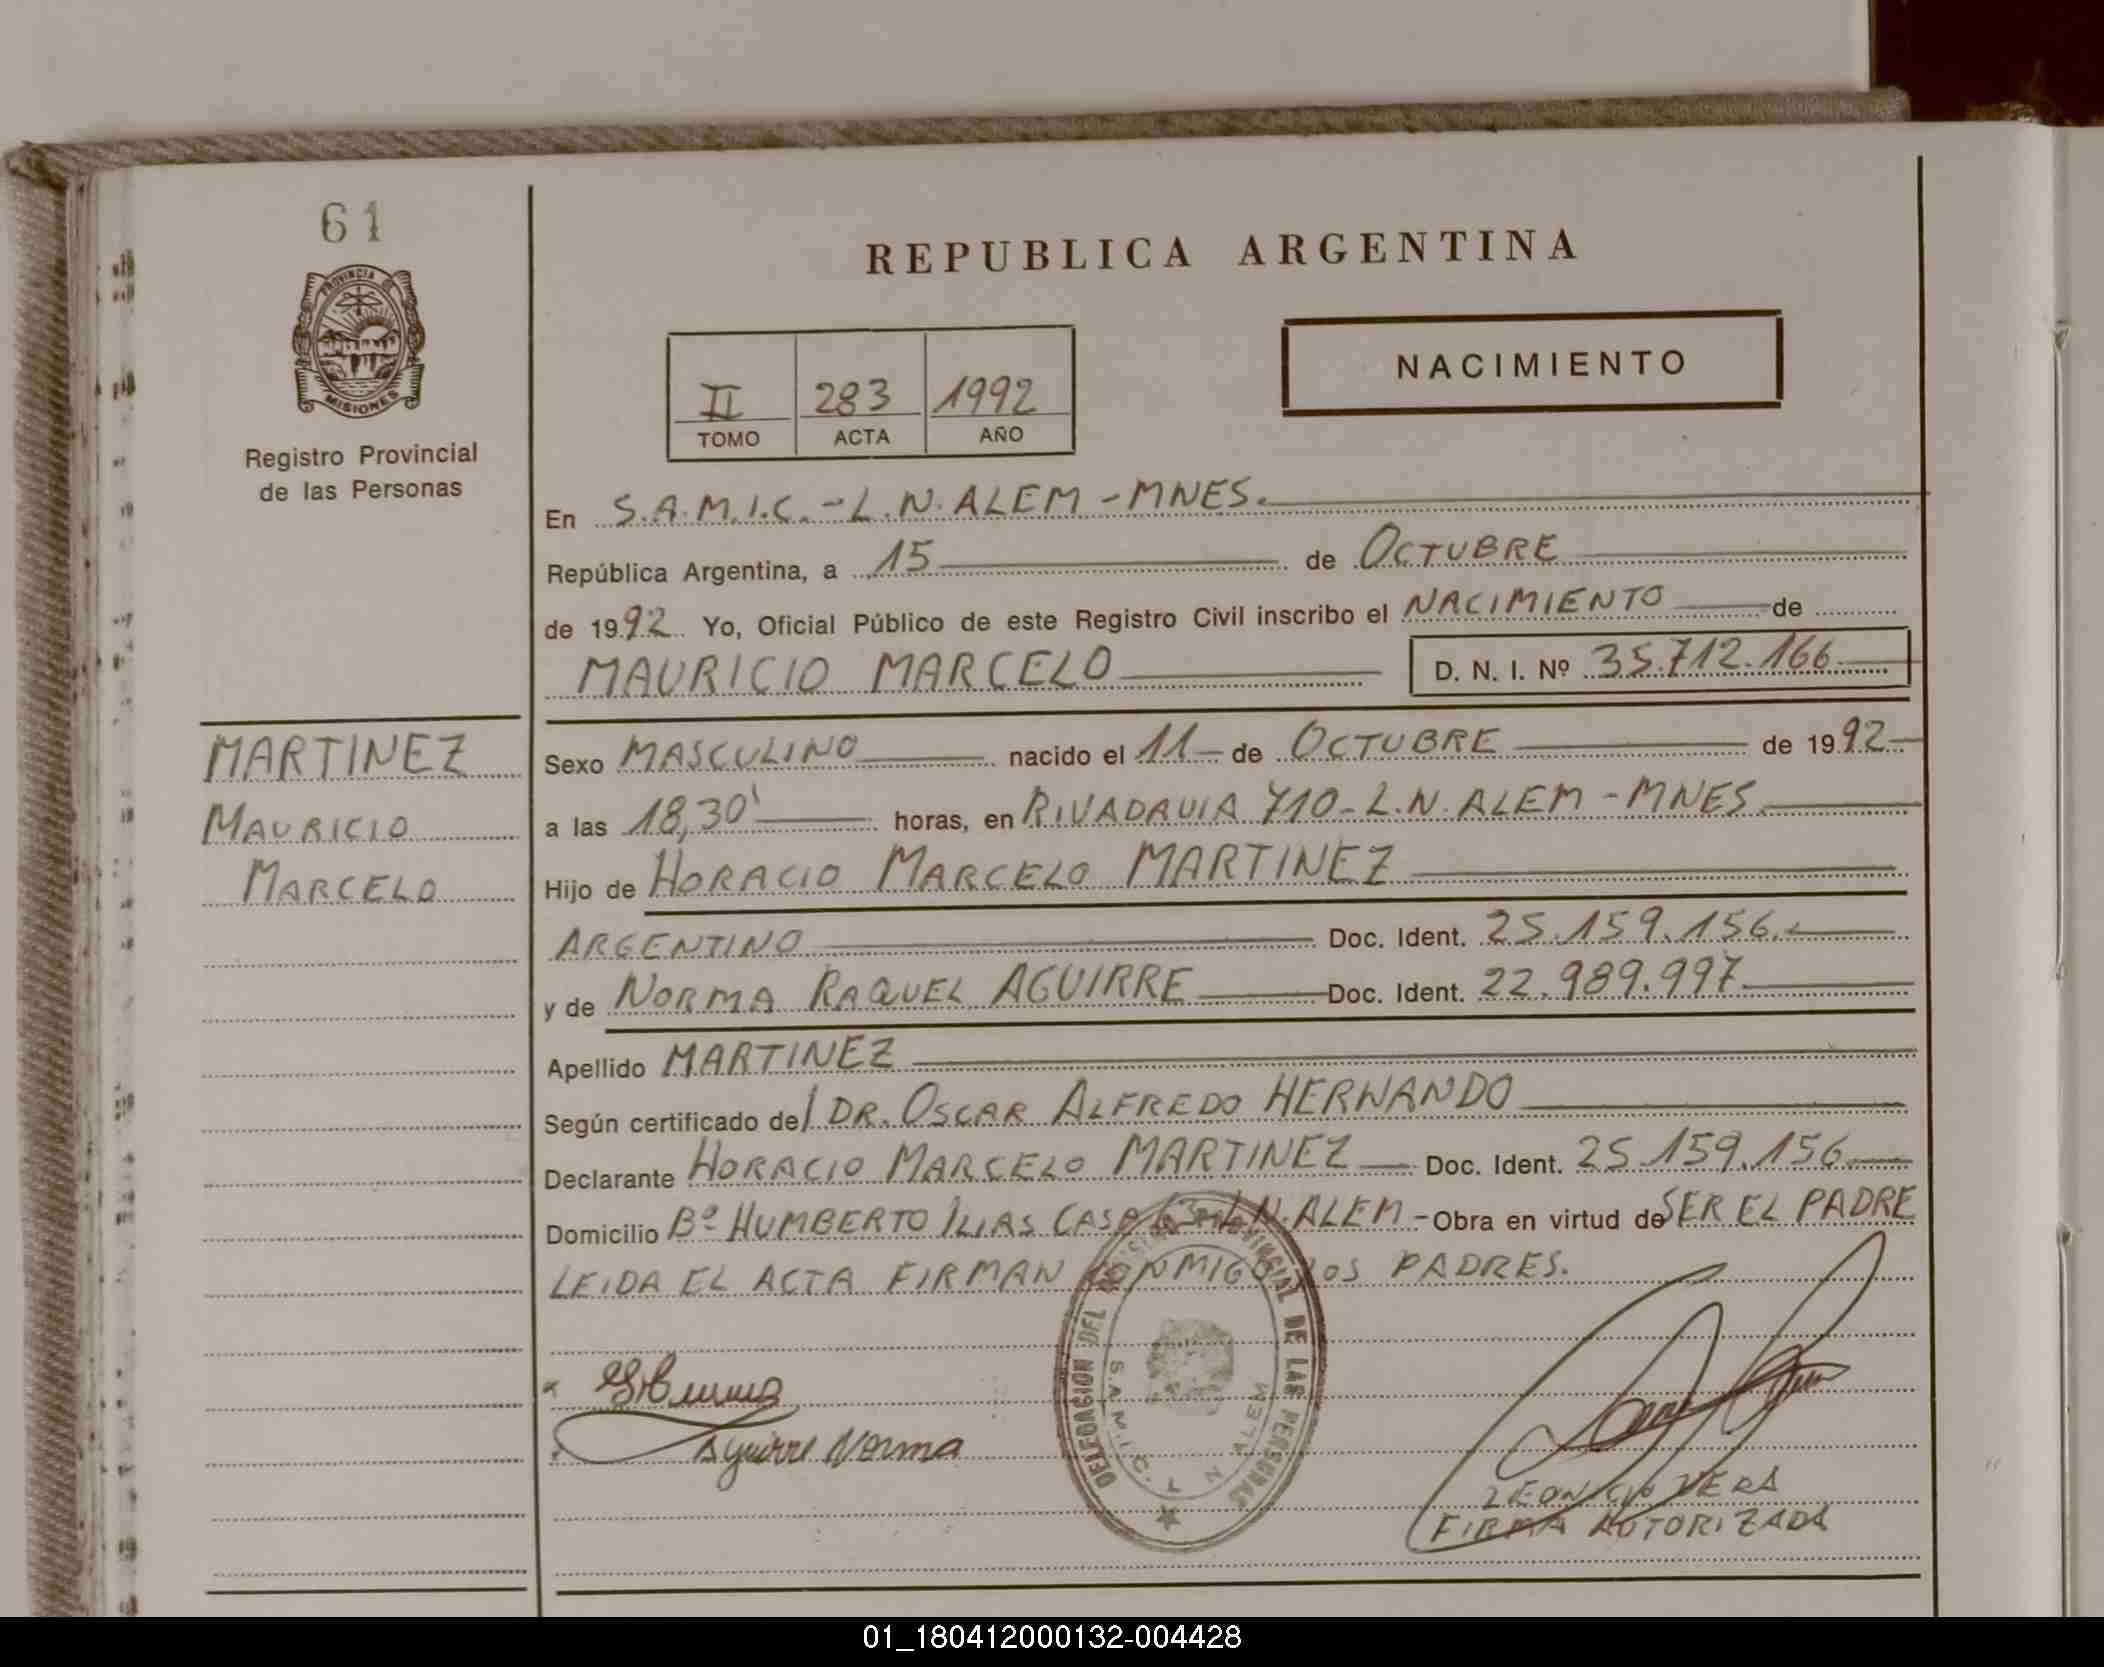 61
PROVINCIA DE
MISIONES
Registro Provincial
de las Personas
REPUBLICA ARGENTINA
II 283 1992
TOMO ACTA AÑO
NACIMIENTO
En S.A.M.I.C.-L.N.ALEM-MNES.
República Argentina, a 15 de OCTUBRE
de 1992 Yo, Oficial Público de este Registro Civil inscribo el NACIMIENTO de
MAURICIO MARCELO D. N. I. Nº 35.712.166
MARTINEZ
MAURICIO
MARCELO
Sexo MASCULINO nacido el 11 de OCTUBRE de 1992
a las 18,30' horas, en RIVADAVIA 710-L.N.ALEM-MNES.
Hijo de HORACIO MARCELO MARTINEZ
ARGENTINO Doc. Ident. 25.159.156.
y de NORMA RAQUEL AGUIRRE Doc. Ident. 22.989.997
Apellido MARTINEZ
Según certificado del DR. OSCAR ALFREDO HERNANDO
Declarante HORACIO MARCELO MARTINEZ Doc. Ident. 25.159.156
Domicilio Bº HUMBERTO ILIAS CASA L.N.ALEM- Obra en virtud de SER EL PADRE
LEIDA EL ACTA FIRMAN CONMIGO LOS PADRES.
Aguirre Norma
DELEGACION DEL REGISTRO PROVINCIAL DE LAS PERSONAS
S.A.M.I.C. L N ALEM
LEONCIO VERA
FIRMA AUTORIZADA
01_180412000132-004428